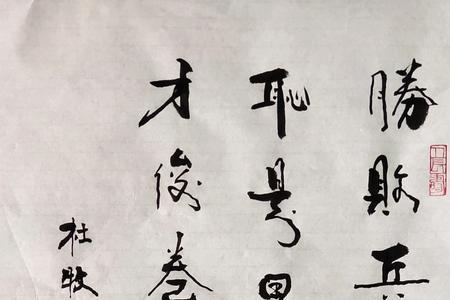 勝敗兵
恥是
才俊卷
杜牧